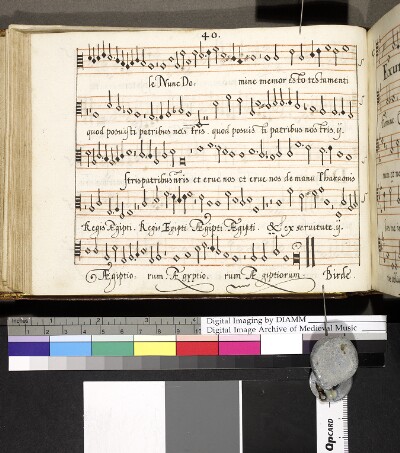 40.
le Nunc Do: mine memor esto testamenti
quod posuisti patribus nostris. quod posuis ti patribus nostris. ij.
stris patribus nris et erue nos et erue nos de manu Pharaonis
Regis Ægipti. Regis Egipti Ægipti Ægipti. & ex seruitute. ij.
Ægiptio: rum. Ægyptio. rum Ægiptiorum. Birde.
Exur
Digital Imaging by DIAMM
Digital Image Archive of Medieval Music
inches
QPCARD